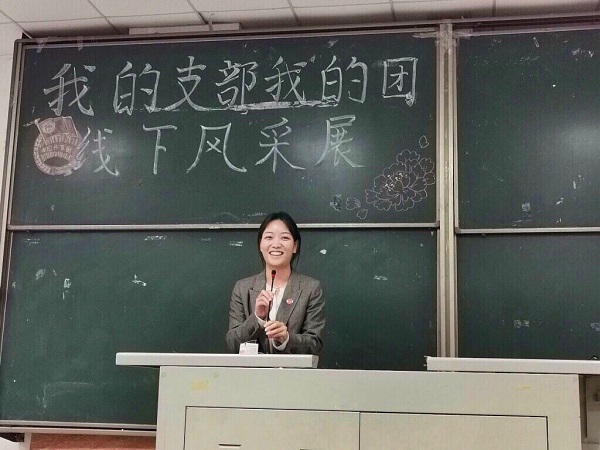 我的支部我的团
线下风采展